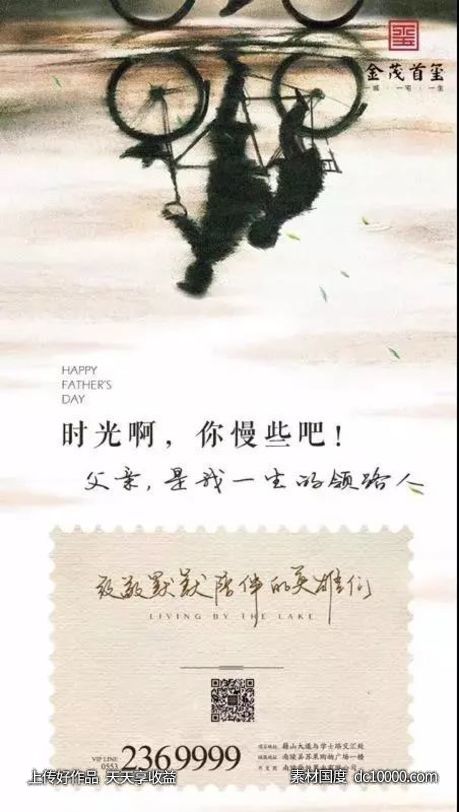 金茂首玺
一城·一宅·一生
HAPPY
FATHER'S
DAY
时光啊，你慢些吧！
父亲，是我一生的领路人
致敬默默陪伴的英雄们
LIVING BY THE LAKE
VIP LINE
0553 2369999
籍山大道与学士路交汇处
南陵县苏果购物广场一楼
上传好作品 天天享收益
素材国度 dc10000.com